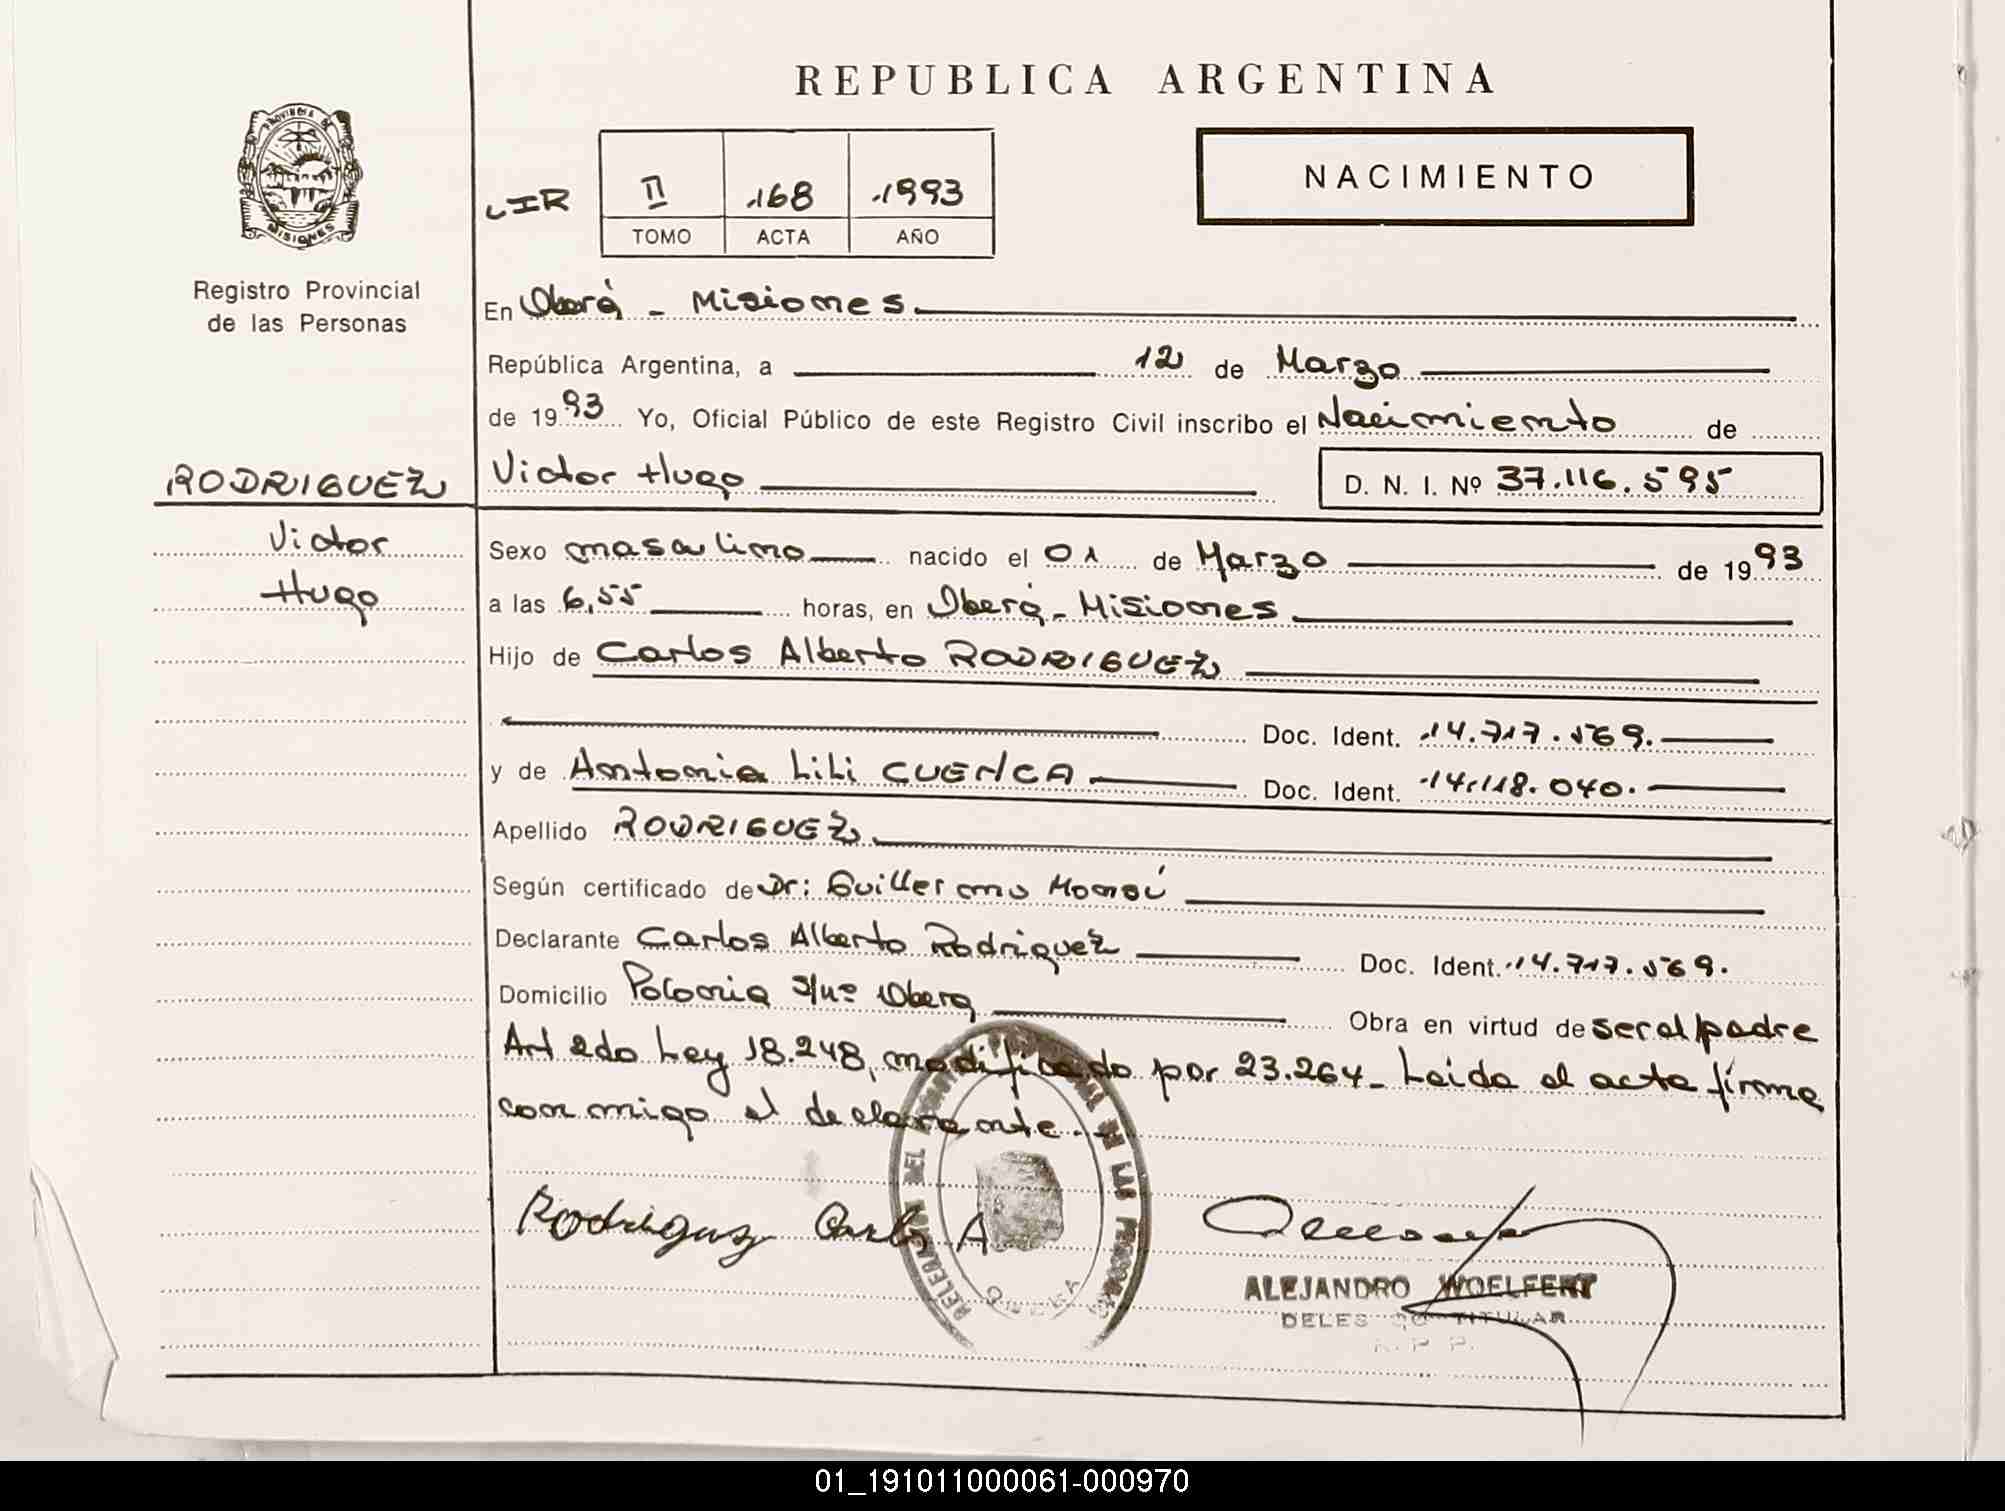 REPUBLICA ARGENTINA
PROVINCIA DE
MISIONES
Registro Provincial
de las Personas
NACIMIENTO
CIR
II 168 1993
TOMO ACTA AÑO
En Oberá - Misiones
República Argentina, a 12 de Marzo
de 1993 Yo, Oficial Público de este Registro Civil inscribo el Nacimiento de
RODRIGUEZ
Victor Hugo D. N. I. Nº 37.116.595
Victor
Hugo
Sexo masculino nacido el 01 de Marzo de 1993
a las 6,55 horas, en Oberá - Misiones
Hijo de Carlos Alberto RODRIGUEZ
Doc. Ident. 14.717.569.
y de Antonia Lili CUENCA Doc. Ident. 14.118.040.
Apellido RODRIGUEZ
Según certificado de Dr: Guillermo
Declarante Carlos Alberto Rodriguez Doc. Ident. 14.717.569.
Domicilio Polonia s/nº Oberá Obra en virtud de ser el padre
Art 2do Ley 18.248, modificado por 23.264 - Leida el acta firma
conmigo el declarante.-
Rodriguez Carlos A
DEL DE LAS PERSONAS
OBERA
ALEJANDRO WOELFERT
TITULAR
R. P. P.
01_191011000061-000970